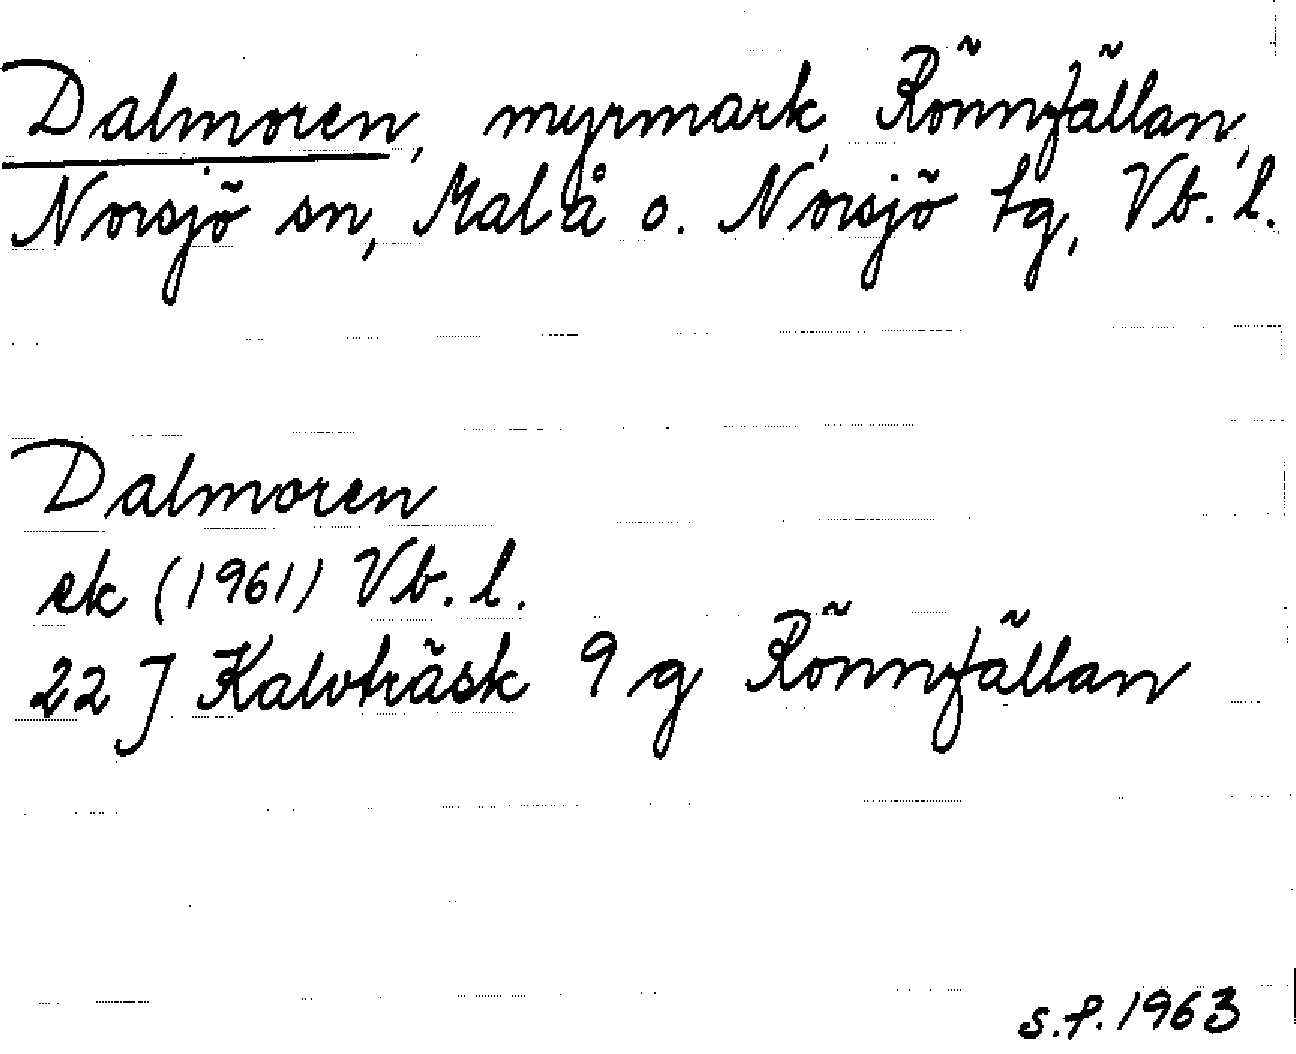 Dalmoren, myrmark, Rönnfällan,
Norsjö sn, Malå o. Norsjö tg, Vb. l.
Dalmoren
ek (1961) Vb. l.
22 J Kalvträsk 9 g Rönnfällan
s.f. 1963